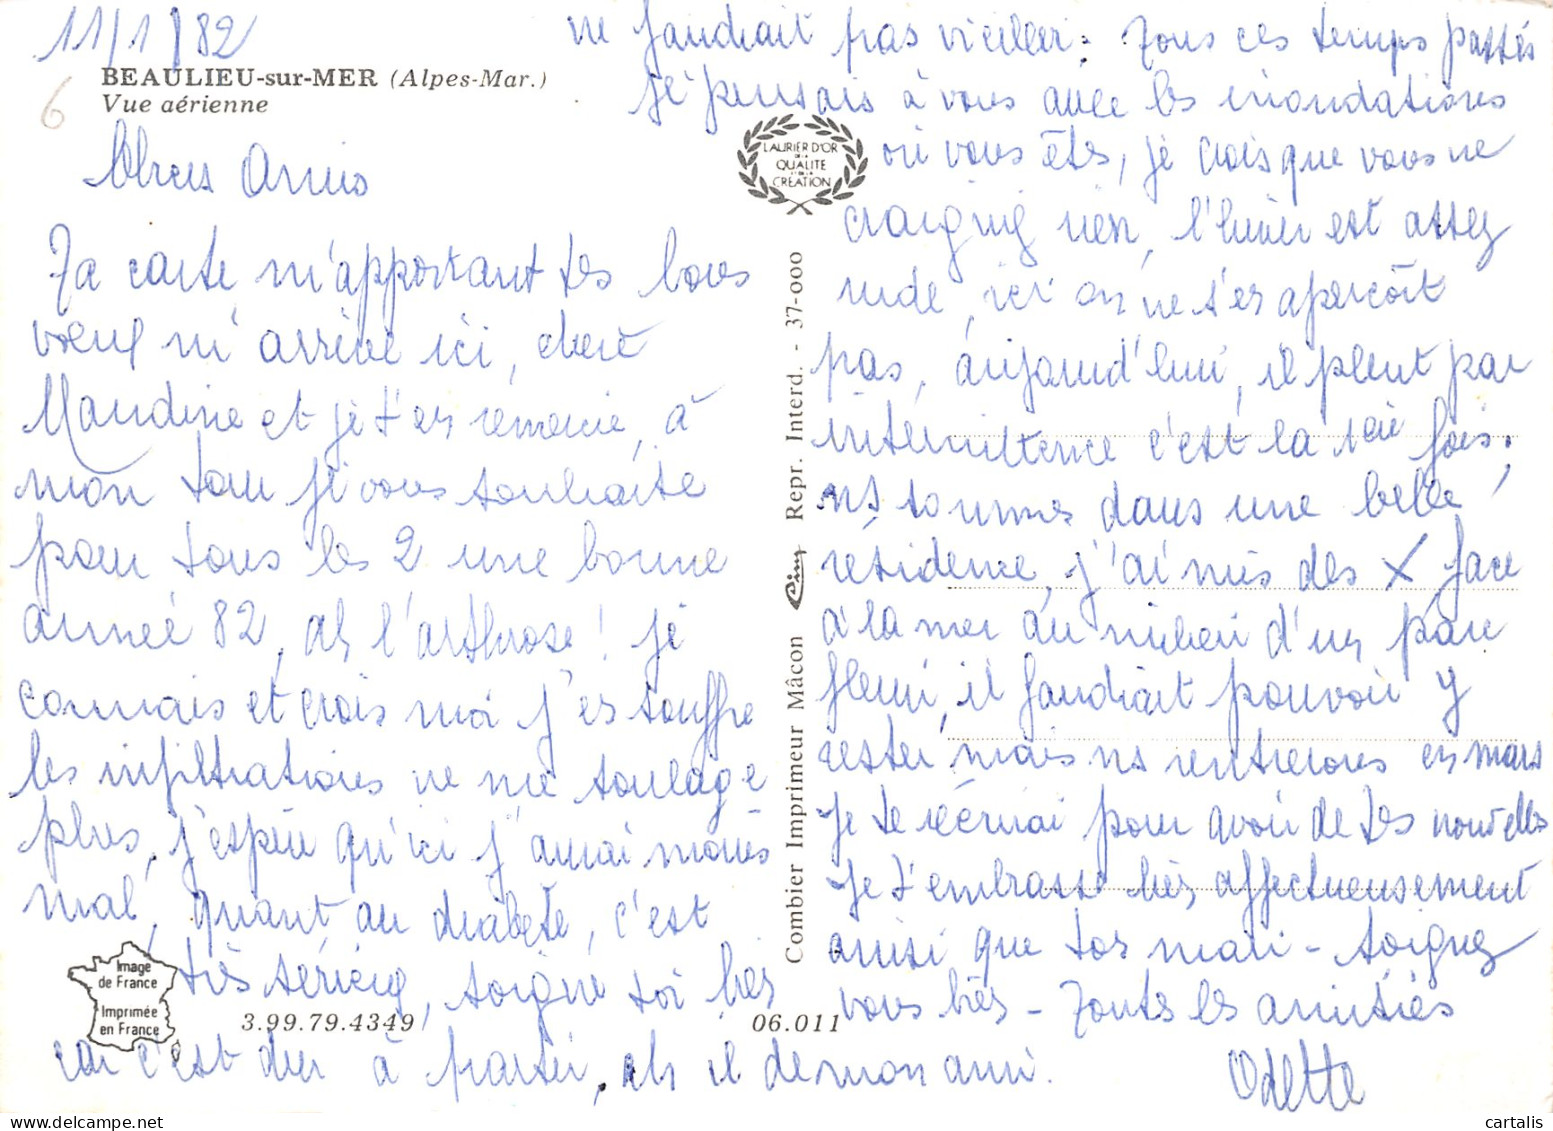 11/1/82
BEAULIEU-sur-MER (Alpes-Mar.)
Vue aérienne
6
Chers Amis
Ta carte m'apportant tes bons
voeux m'arrive ici, chère
Maudine et je t'en remercie, à
mon tour je vous souhaite
pour tous les 2 une bonne
année 82, ah l'arthrose! je
connais et crois moi j'en souffre
les infiltrations ne me soulage
plus, j'espère qu'ici j'aurai moins
mal, quant au diabète, c'est
très sérieux, soigne toi bien
car c'est dur à partir, ah il de mon ami.
Image
de France
Imprimée
en France
3.99.79.4349
06.011
Combier Imprimeur Mâcon Cim Repr. Interd. - 37-000
LAURIER D'OR
DE LA
QUALITE
ET DE LA
CREATION
ne faudrait pas vieillir. Tous ces temps passés
je pensais à vous avec les inondations
où vous êtes, je crois que vous ne
craignez rien, l'hiver est assez
rude, ici on ne s'en aperçoit
pas, aujourd'hui, il pleut par
intermittence c'est la 1ère fois.
ns sommes dans une belle
résidence, j'ai mis des X face
à la mer au milieu d'un parc
fleuri, il faudrait pouvoir y
rester, mais ns rentrerons en mars
Je te récrirai pour avoir de tes nouvelles
Je t'embrasse bien affectueusement
ainsi que ton mari - soignez
vous bien - Toutes les amitiés
Odette